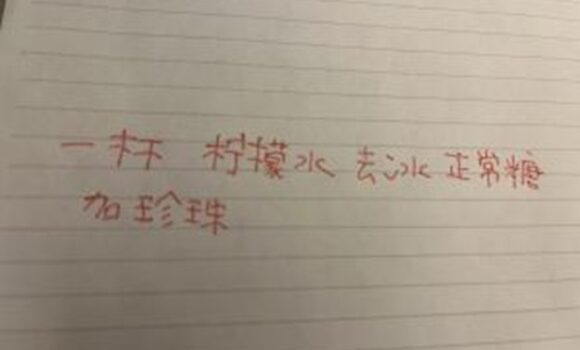 一杯 柠檬水 去冰 正常糖
加珍珠